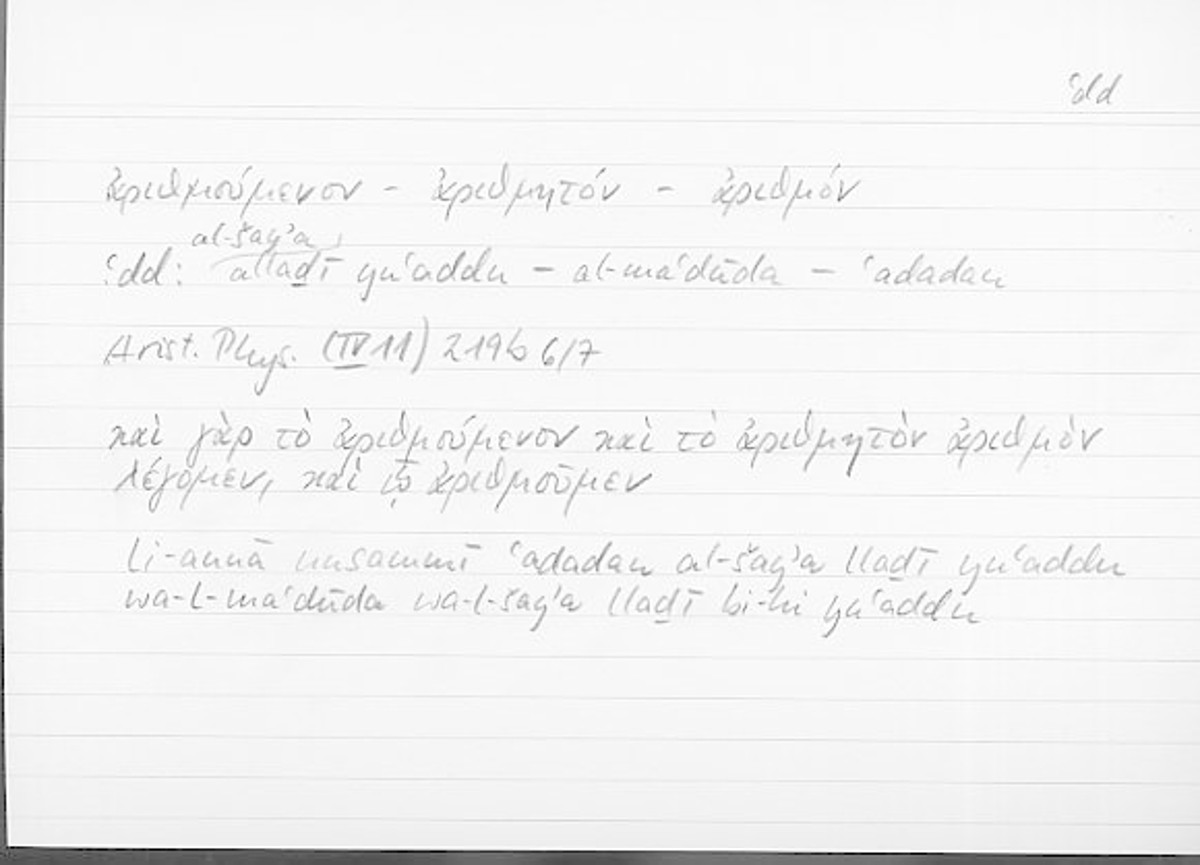 ʿdd
ἀριθμούμενον - ἀριθμητόν - ἀριθμόν
al-šayʾa
ʿdd: allaḏī yuʿaddu - al-maʿdūda - ʿadadan
Arist. Phys. (IV 11) 219b 6/7
καὶ γὰρ τὸ ἀριθμούμενον καὶ τὸ ἀριθμητὸν ἀριθμὸν
λέγομεν, καὶ ᾧ ἀριθμοῦμεν
li-annā nusammī ʿadadan al-šayʾa llaḏī yuʿaddu
wa-l-maʿdūda wa-l-šayʾa llaḏī bi-hi yuʿaddu